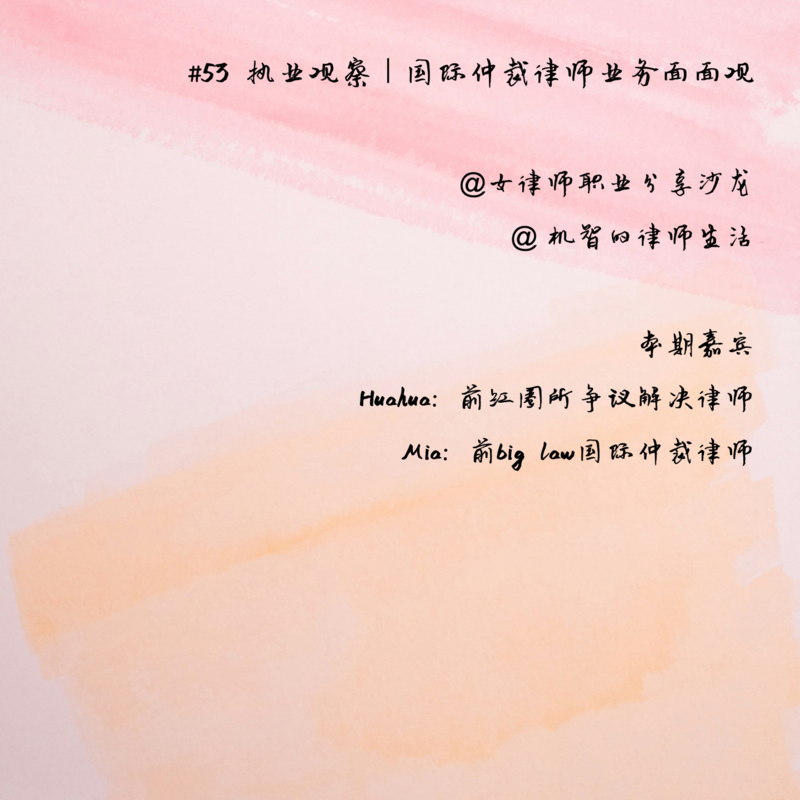 #53 执业观察｜国际仲裁律师业务面面观
@女律师职业分享沙龙
@ 机智的律师生活
本期嘉宾
Huahua: 前红圈所争议解决律师
Mia: 前big law国际仲裁律师